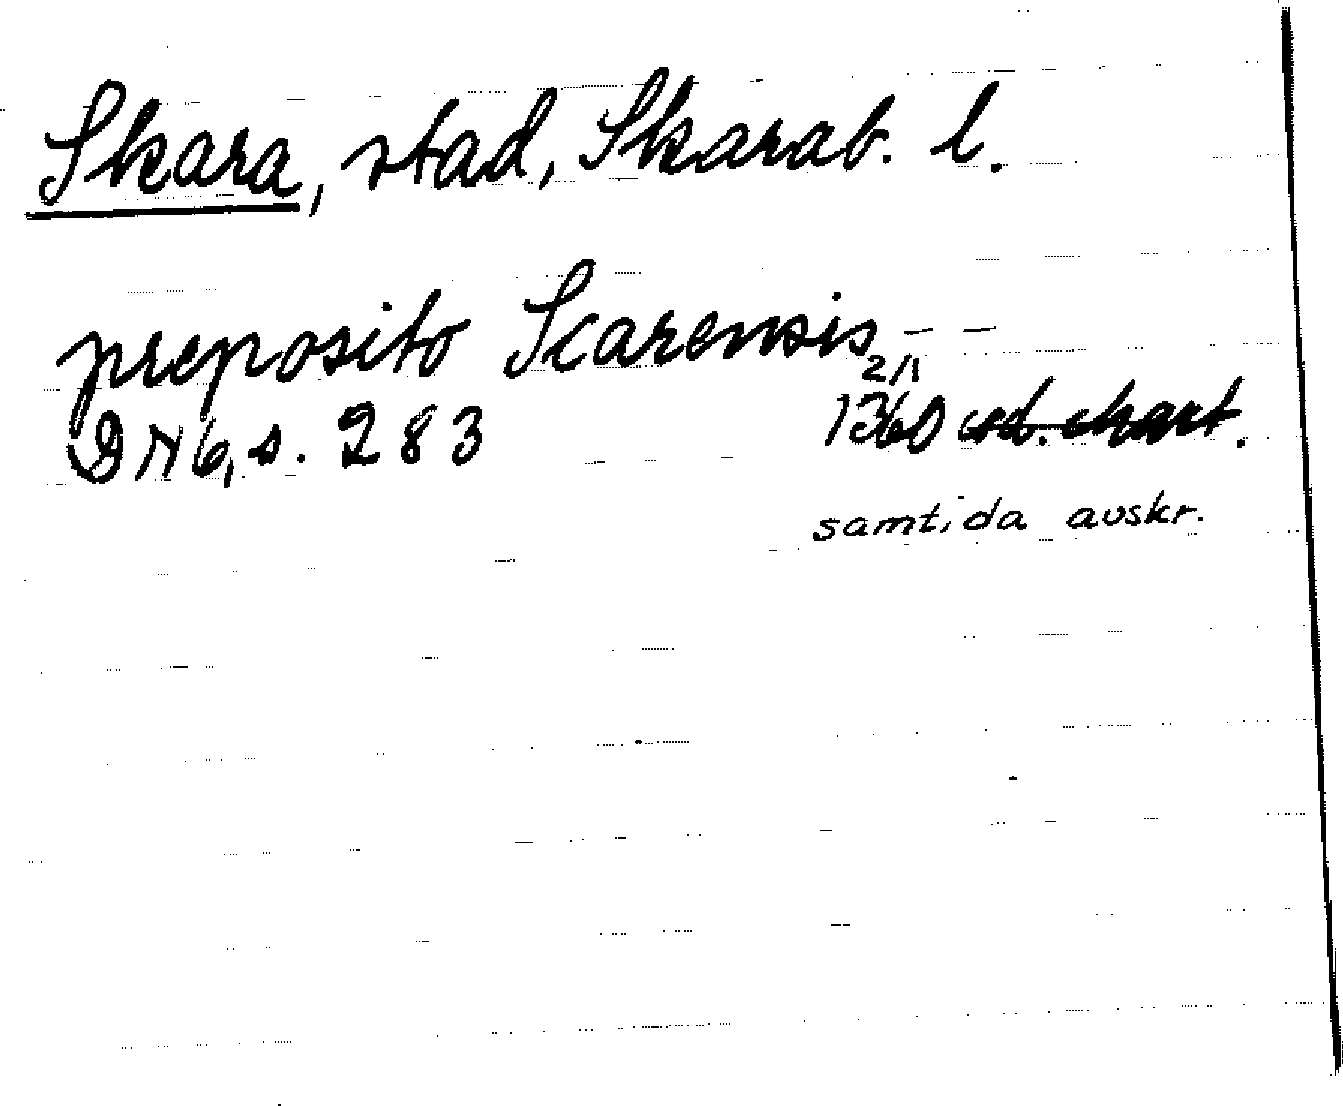 Skara, stad, Skarab. l.
preposito Scarensis – –
2/1
DN 6, s. 283 1360 cod. chart.
samtida avskr.